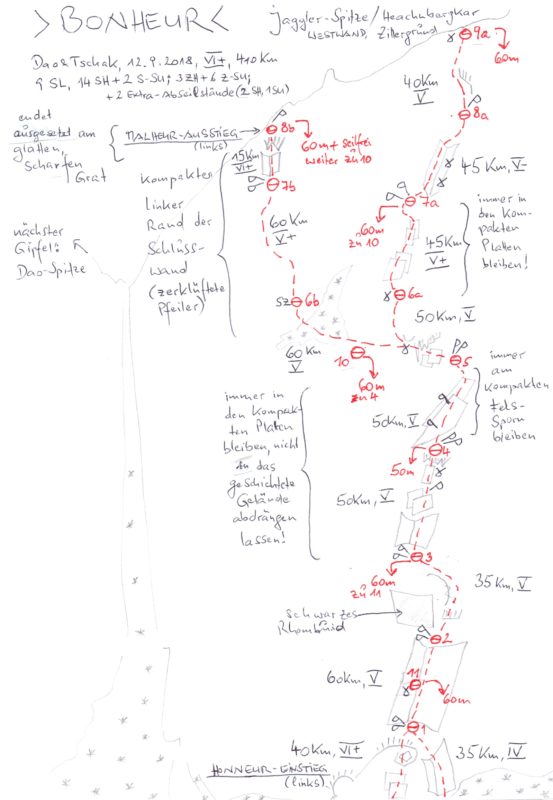 > BONHEUR <
Jaggler-Spitze/Heachbergkar
WESTWAND, Zillergründ
Dao & Tschak, 12.9.2018, VI+, 410 Km
9 SL, 14 SH + 2 S-SU; 3 ZH + 6 Z-SU;
+ 2 Extra-Abseilstände (2 SH, 1 SU)
endet
ausgesetzt am
glatten,
scharfen
Grat
MALHEUR-AUSSTIEG
(links)
8b
60m + Seilfrei
weiter zu 10
15Km
VI+
7b
Kompaktes
linker
Rand der
Schluss-
wand
(zerklüftete
Pfeiler)
nächster
Gipfel:
Dao-Spitze
60Km
V+
SZ
6b
60Km
V
10
60m
zu 4
9a
60m
40Km
V
8a
45Km, V-
7a
60m
zu 10
45Km
V+
immer in
den Kom-
pakten
Platten
bleiben!
6a
50Km, V
5
immer
am
kompakten
Fels-
Sporn
bleiben
50Km, V
4
50m
immer in
den Kompak-
ten Platten
bleiben, nicht
in das
geschichtete
Gelände
abdrängen
lassen!
50Km, V
3
60m
zu 11
35Km, V
schwarzes
Rhomboid
2
60Km, V
11
60m
1
40Km, VI+
HONNEUR-EINSTIEG
(links)
35Km, IV